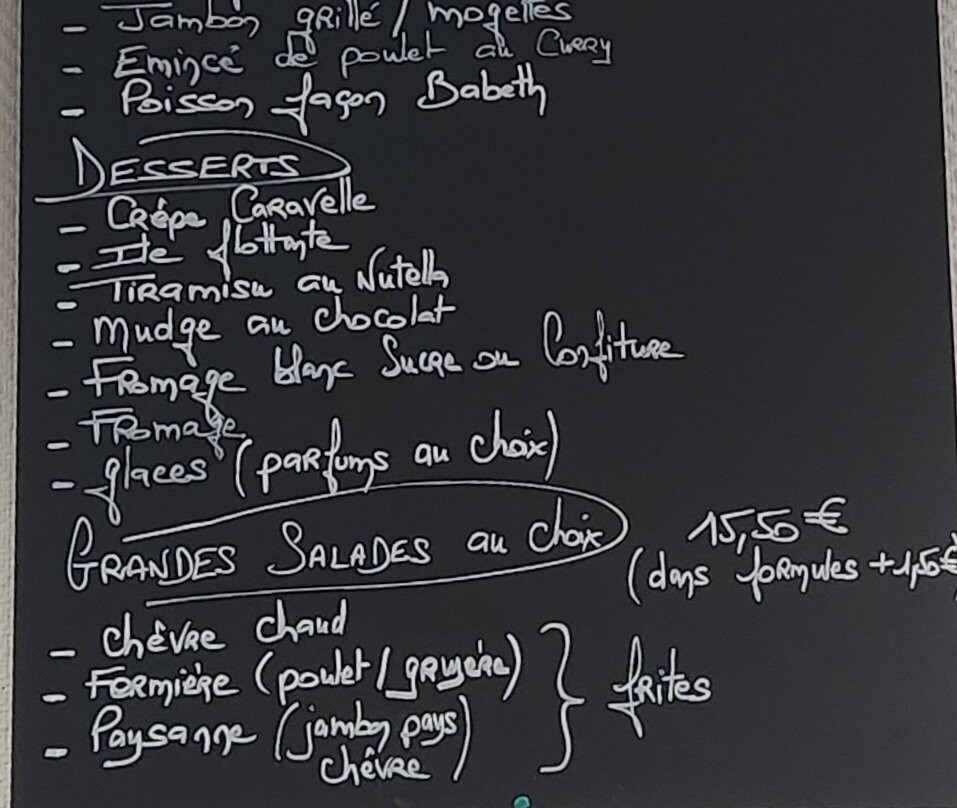 - Jambon grillé / mogettes
- Emincé de poulet au Curry
- Poisson façon Babeth
DESSERTS
- Crêpe Caravelle
- Ile flottante
- Tiramisu au Nutella
- Mudge au chocolat
- Fromage blanc Sucre ou Confiture
- Fromage
- glaces (parfums au choix)
GRANDES SALADES au choix 15,50 €
(dans formules +1,50 €
- Chèvre chaud
- Fermière (poulet / gruyère)
- Paysanne (jambon pays
chèvre)
} frites